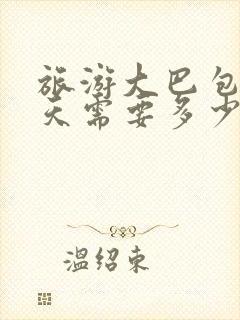 旅游大巴包
天需要多少
温绍东